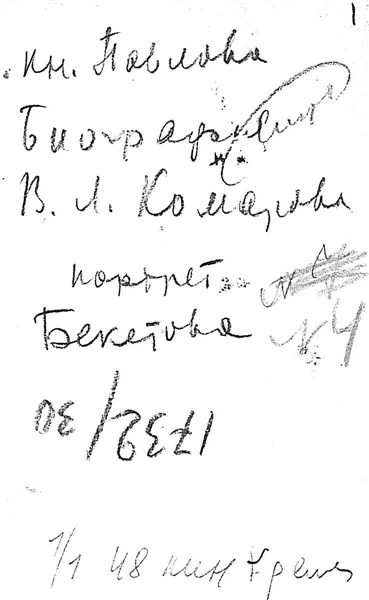 1
кн. Павлова
Биография
В. Л. Комарова
портрет
Бекетова №4
1739/30
1/1 48 кин